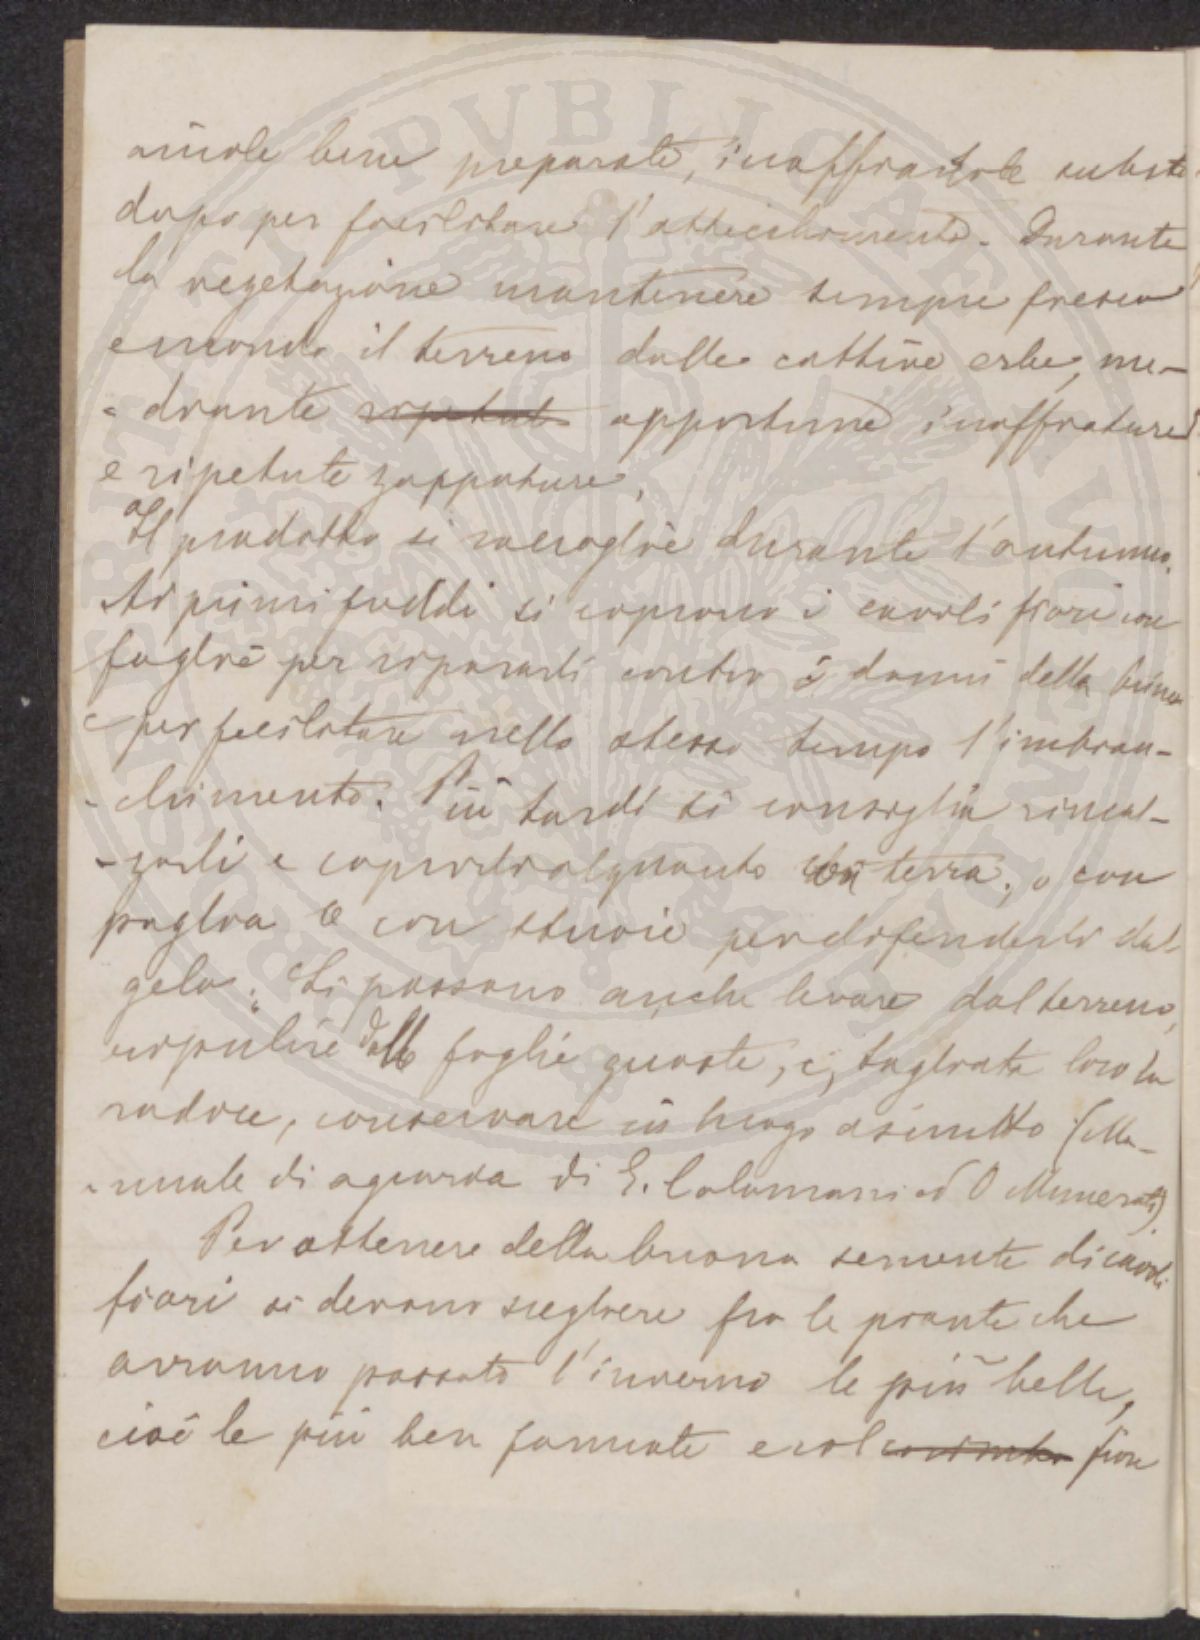 aiuole bene preparate, inaffiandole subito
dopo per facilitare l'attecchimento. Durante
la vegetazione mantenere sempre fresco
e mondo il terreno dalle cattive erbe, me-
-diante ripetute opportune inaffiature
e ripetute zappature.
Il prodotto si raccoglie durante l'autunno.
Ai primi freddi si coprono i cavoli fiori con
foglie per ripararli contro i danni della brina
e per facilitare nello stesso tempo l'imbian-
-chimento. Più tardi si consiglia rincal-
-zarli e coprirli alquanto con terra, o con
paglia o con stuoie per difenderli dal
gelo. Si possono anche levare dal terreno,
ripulire dalle foglie guaste, e, tagliata loro la
radice, conservare in luogo asciutto (Ma-
-nuale di agraria di E. Calamani ed O Munerati).
Per ottenere della buona semente di cavoli
fiori si devono scegliere fra le piante che
avranno passato l'inverno le più belle,
cioè le più ben formate e col fiore